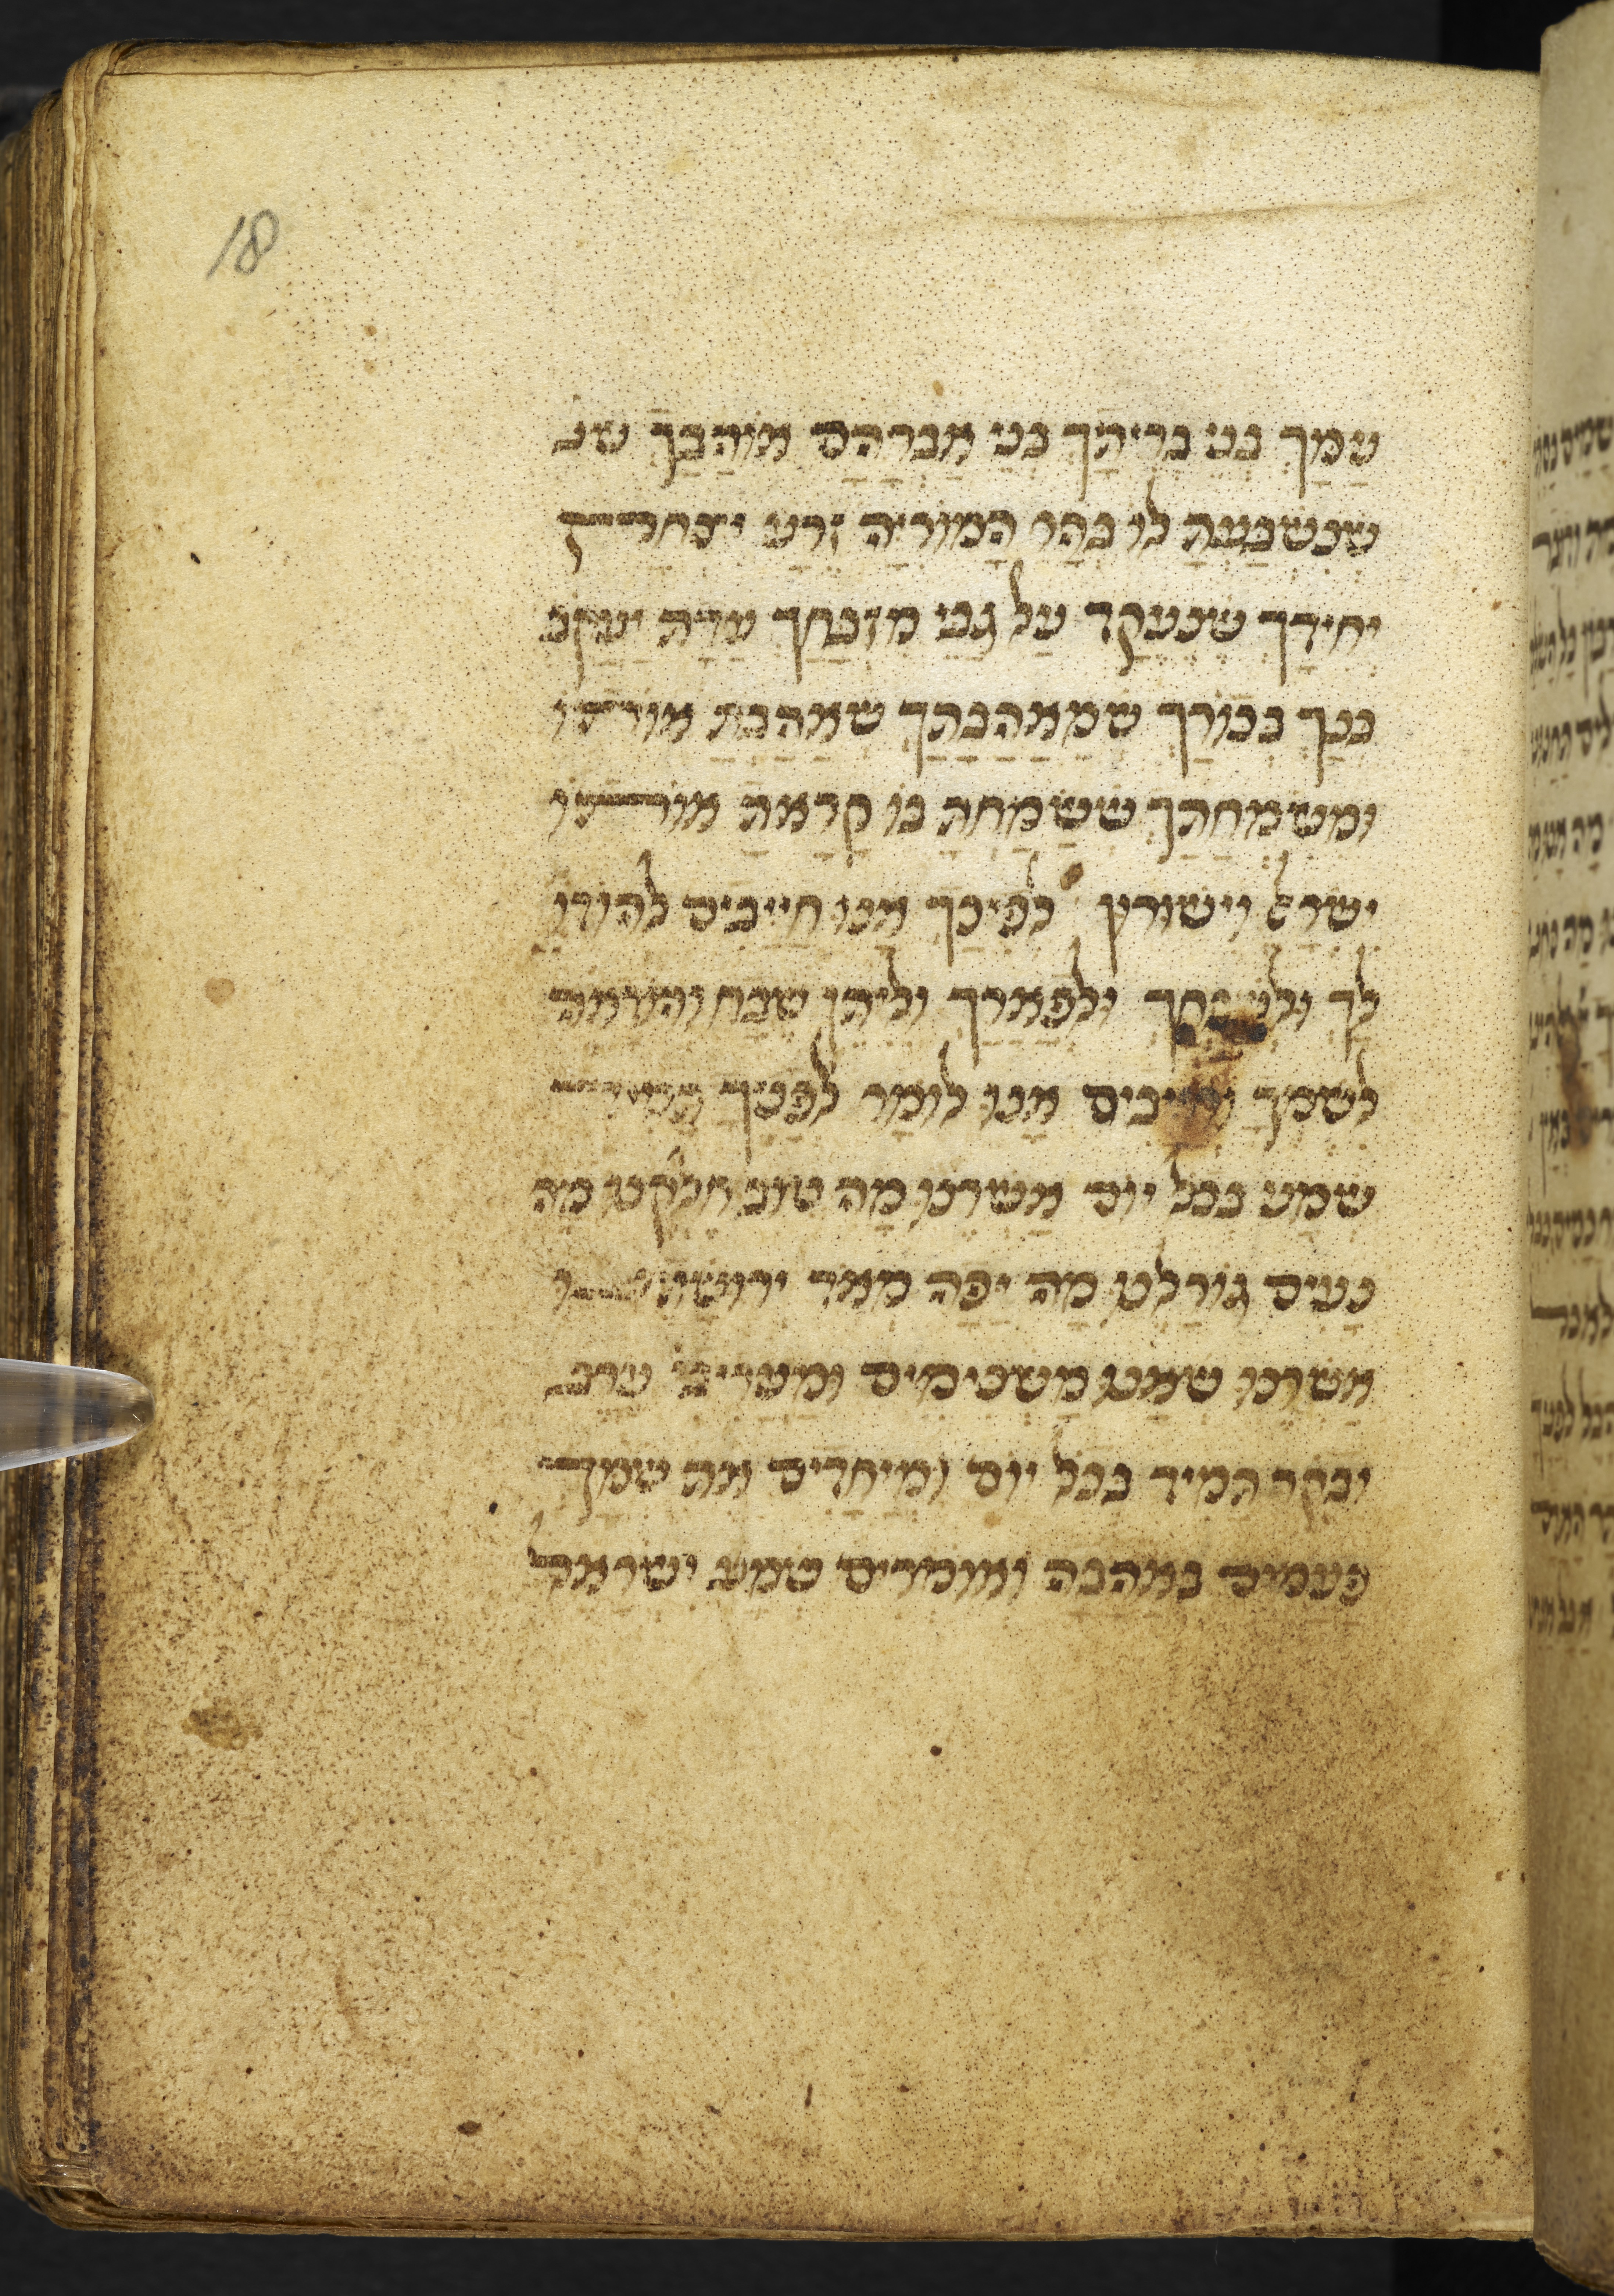 18
עמך בני בריתך בני אברהם אוהבך שנ
שנשבעת לו בהר המוריה זרע יצחק
יחידך שנעקד על גבי מזבחך עדת יעקב
בנך בכורך שמאהבתך שאהבת אותו
ומשמחתך ששמחת בו קראת אותו
ישרל וישורון לפיכך אנו חייבים להודו
לך ולשבחך ולפארך וליתן שבח והודאה
לשמך וחייבים אנו לומר לפניך
שמע בכל יום אשרנו מה טוב חלקנו מה
נעים גורלנו מה יפה מאד ירושתנו
אשרנו שאנו משכימים ומעריבי ערב
ובקר תמיד בכל יום ומיחדים את שמך
פעמים באהבה ואומרים שמע ישראל